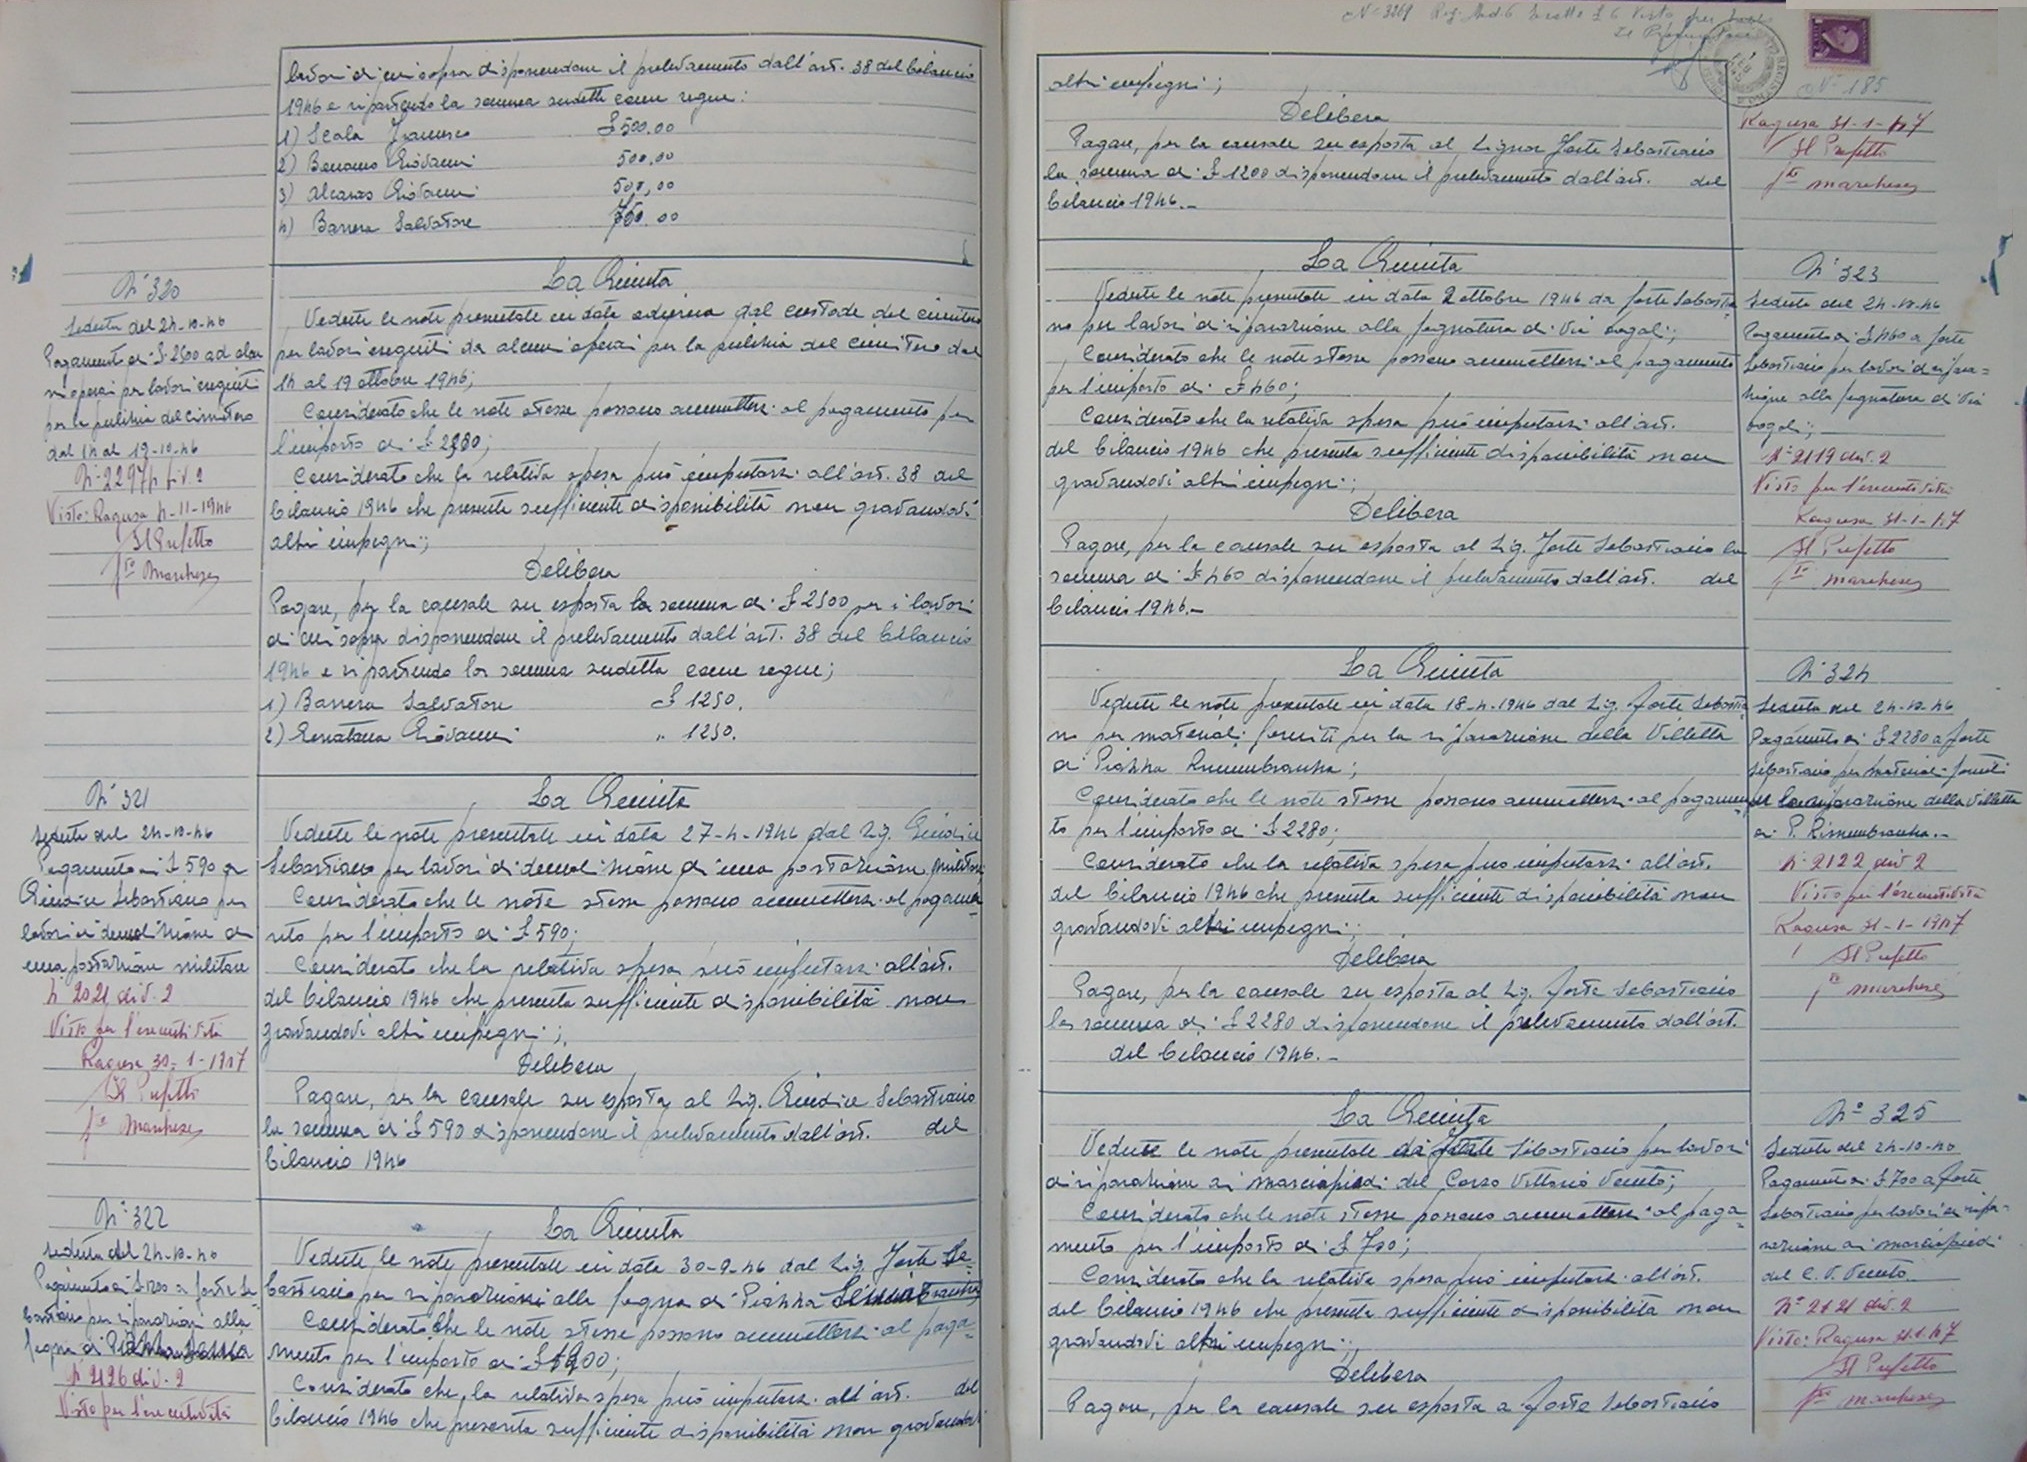 lavori di cui sopra disponendone il prelevamento dall'art. 38 del bilancio
1946 e ripartendo la somma sudetta come segue:
1) Scala Francesco £ 500.00
2) Giovanni 500,00
3) Giovanni 500,00
4) Barrera Salvatore .00
N° 320
Seduta del 24-10-46
Pagamento di £ 2500 ad alcu
ni operai per lavori eseguiti
per la pulizia del cimitero
dal 14 al 19-10-46
N. 2297 div. 2
Visto: Ragusa 4-11-1946
Il Prefetto
fto Marchese
La Giunta
Vedute le note presentate in data odierna dal custode del cimitero
per lavori eseguiti da alcuni operai per la pulizia del cimitero dal
14 al 19 ottobre 1946;
Considerato che le note stesse possono ammettersi al pagamento per
l'importo di £
Considerato che la relativa spesa può imputarsi all'art. 38 del
bilancio 1946 che presenta sufficiente disponibilità non gravandovi
altri impegni;
Delibera
Pagare, per la causale su esposta la somma di £ 2500 per i lavori
di cui sopra disponendone il prelevamento dall'art. 38 del bilancio
1946 e ripartendo la somma sudetta come segue;
1) Barrera Salvatore £ 1250.
2) Giovanni " 1250.
N° 321
Seduta del 24-10-46
Pagamento di £ 590 a
Giudice Sebastiano per
lavori di demolizione di
una postazione militare
N° 2021 div. 2
Visto per l'esecutività
Ragusa 30-1-1947
Il Prefetto
fto Marchese
La Giunta
Vedute le note presentate in data 27-4-1946 dal Sig. Giudice
Sebastiano per lavori di demolizione di una postazione militare
Considerato che le note stesse possono ammettersi al pagame
nto per l'importo di £ 590;
Considerato che la relativa spesa può imputarsi all'art.
del bilancio 1946 che presenta sufficiente disponibilità non
gravandovi altri impegni;
Delibera
Pagare, per la causale su esposta al Sig. Giudice Sebastiano
la somma di £ 590 disponendone il prelevamento dall'art. del
bilancio 1946
N° 322
Seduta del 24-10-46
Pagamento di £ 1200 a Forte Se
bastiano per riparazioni alla
fogna di Piazza
N° 2126 div. 2
Visto per l'esecutività
La Giunta
Vedute le note presentate in data 30-9-46 dal Sig. Forte Se-
bastiano per riparazioni alla fogna di Piazza
Considerato che le note stesse possono ammettersi al paga-
mento per l'importo di £
Considerato che la relativa spesa può imputarsi all'art. del
bilancio 1946 che presenta sufficiente disponibilità non gravandovi
N° 3269 Reg. Mod. 6 Esatte £ 6 Visto per
Il Procuratore
N° 185
altri impegni;
Delibera
Pagare, per la causale su esposta al Signor Forte Sebastiano
la somma di £ 1200 disponendone il prelevamento dall'art. del
bilancio 1946.-
Ragusa 31-1-47
Il Prefetto
fto Marchese
La Giunta
Vedute le note presentate in data 2 ottobre 1946 da Forte Sebastia
no per lavori di riparazione alla fognatura di Via
Considerato che le note stesse possono ammettersi al pagamento
per l'importo di £ 460;
Considerato che la relativa spesa può imputarsi all'art.
del bilancio 1946 che presenta sufficiente disponibilità non
gravandovi altri impegni;
Delibera
Pagare, per la causale su esposta al Sig. Forte Sebastiano la
somma di £ 460 disponendone il prelevamento dall'art. del
bilancio 1946.-
N° 323
Seduta del 24-10-46
Pagamento di £ 460 a Forte
Sebastiano per lavori di ripara=
zione alla fognatura di Via
N° 2119 div. 2
Visto per l'esecutività
Ragusa 31-1-47
Il Prefetto
fto Marchese
La Giunta
Vedute le note presentate in data 18-4-1946 dal Sig. Forte Sebastia
no per materiali forniti per la riparazione della Villetta
di Piazza Rimembranza;
Considerato che le note stesse possono ammettersi al pagamen
to per l'importo di £ 2280;
Considerato che la relativa spesa può imputarsi all'art.
del bilancio 1946 che presenta sufficiente disponibilità non
gravandovi altri impegni;
Delibera
Pagare, per la causale su esposta al Sig. Forte Sebastiano
la somma di £ 2280 disponendone il prelevamento dall'art.
del bilancio 1946.-
N° 324
Seduta del 24-10-46
Pagamento di £ 2280 a Forte
Sebastiano per materiali forniti
per la riparazione della Villetta
di P. Rimembranza.-
N° 2122 div 2
Visto per l'esecutività
Ragusa 31-1-1947
Il Prefetto
fto Marchese
La Giunta
Vedute le note presentate da Forte Sebastiano per lavori
di riparazione ai marciapiedi del Corso Vittorio Veneto;
Considerato che le note stesse possono ammettersi al paga=
mento per l'importo di £ 700;
Considerato che la relativa spesa può imputarsi all'art.
del bilancio 1946 che presenta sufficiente disponibilità non
gravandovi altri impegni;
Delibera
Pagare, per la causale su esposta a Forte Sebastiano
N° 325
Seduta del 24-10-46
Pagamento di £ 700 a Forte
Sebastiano per lavori di ripa=
razione ai marciapiedi
del C. V. Veneto
N° 2121 div. 2
Visto: Ragusa 31-1-47
Il Prefetto
fto Marchese